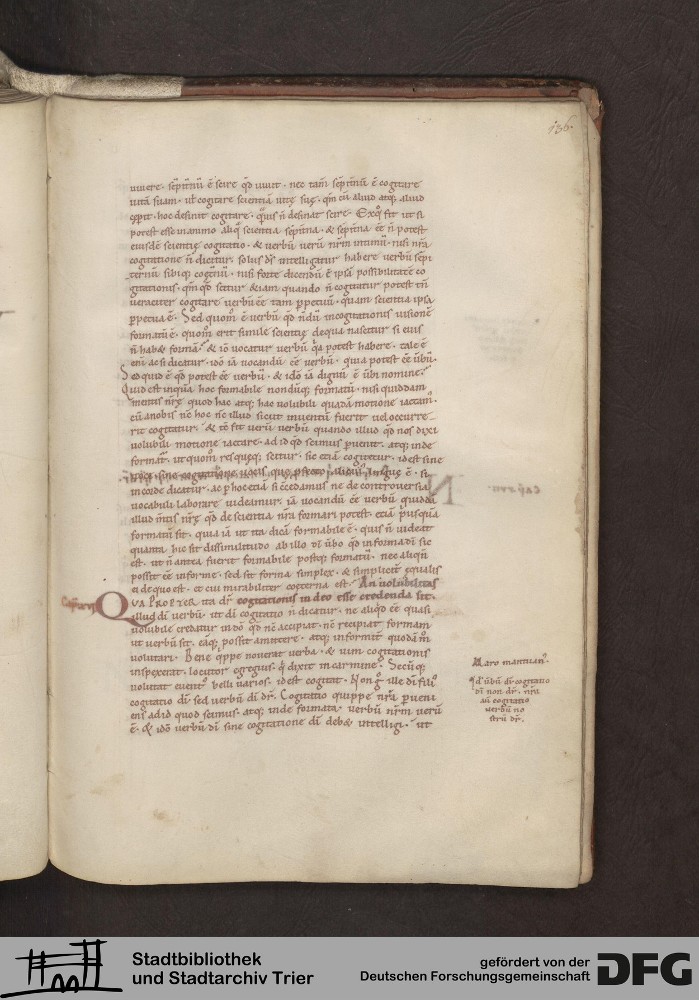 136.
uiuere · sẽpitnũ ẽ scire qd uiuit · nec tam̃ sẽpitnũ ẽ cogitare
uitã suam · uł cogitare scientiã uitę suę · qm̃ cũ aliud atq; aliud
cęperit · hoc desinit cogitare · quis ñ desinat scire · Ex quo fit ut si
potest esse in animo aliq̃ scientia sẽpitna · & sẽpitna ẽe ñ potest
eiusdẽ scientię cogitatio · & uerbũ uerũ nr̃m intimũ · nisi nr̃a
cogitatione ñ dicitur · solus ds̃ intelligatur habere uerbũ sẽpi
ternũ sibiq; coẹtnũ · nisi forte dicendũ ẽ ipsã possibilitatẽ co
gitationis · qm̃ qd scitur etiam quando ñ cogitatur potest tñ
ueraciter cogitare uerbũ ẽe tam ppetuũ · quam scientia ipsa
ppetua ẽ · Sed quom̃ ẽ uerbũ qd nõdũ in cogitationis uisione
formatũ ẽ · quom̃ erit simile scientię de qua nascitur si eius
ñ habet formã · & iõ uocatur uerbũ qa potest habere · tale ẽ
eni ac si dicatur · ido iã uocandũ ẽe uerbũ · quia potest ẽe ũbũ ·
Sed quid ẽ qd potest ẽe uerbũ · & idõ iã dignũ ẽ ũbi nomine ·
Quid est inquã hoc formabile nondũq; formatũ · nisi quiddam
mentis nr̃ę quod hac atq; hac uolubili quadã motione iactam̃ ·
cũ a nobis nc̃ hoc nc̃ illud sicut inuentũ fuerit uel occurre
rit cogitatur · & tẽ fit uerũ uerbũ quando illud qd nos dixi
uolubili motione iactare · ad id qd scimus puenit · atq; inde
format̃ · ut quom̃ res quęq; scitur · sic etiã cogitetur · id est sine
uoce · sine cogitatione uocis, que pfecto alicuius linguę ẽ · si
in corde dicatur · ac p hoc etiã si cẽcedamus ne de controuersia
uocabuli laborare uideamur · iã uocandũ ẽe uerbũ quiddã
illud m̃tis nr̃ę qd de scientia nr̃a formari potest · etiã priusquã
formatũ sit · quia iã ut ita dicã formabile ẽ · quis ñ uideat
quanta hic sit dissimilitudo ab illo di ũbo qd in forma di sic
est · ut ñ antea fuerit formabile postq; formatũ · nec aliqñ
possit ẽe informe · sed sit forma simplex · & simplicit equalis
ei de quo est · et cui mirabiliter coęterna est · An uolubilitas
QUAPROPTER ita dr̃ cogitationis in deo esse credenda sit.
illud di uerbũ · ut di cogitatio ñ dicatur · ne aliqd ẽe quasi
uolubile credatur in do qd nc̃ accipiat · nc̃ recipiat formam
ut uerbũ sit · eãq; possit amittere · atq; informit quodã m̃
uolutari · Bene qppe nouerat uerba · & uim cogitationis
inspexerat · locutor egregius · q dixit in carmine · Secũq;
uolutat euent belli uarios · id est cogitat · Non g̃ ille di fili
cogitatio di sed uerbũ di dr̃ · Cogitatio quippe nr̃a pueni
ens ad id quod scimus · atq; inde formata · uerbũ nr̃m uerũ
ẽ · & idõ uerbũ di sine cogitatione di debet intelligi · ut
Maro mantuan ·
qd ũbũ dr̃ cogitatio
di non dr̃ · nr̃a
aũ cogitatio
uerbũ no
strũ dr̃ ·
Stadtbibliothek
und Stadtarchiv Trier
gefördert von der
Deutschen Forschungsgemeinschaft
DFG